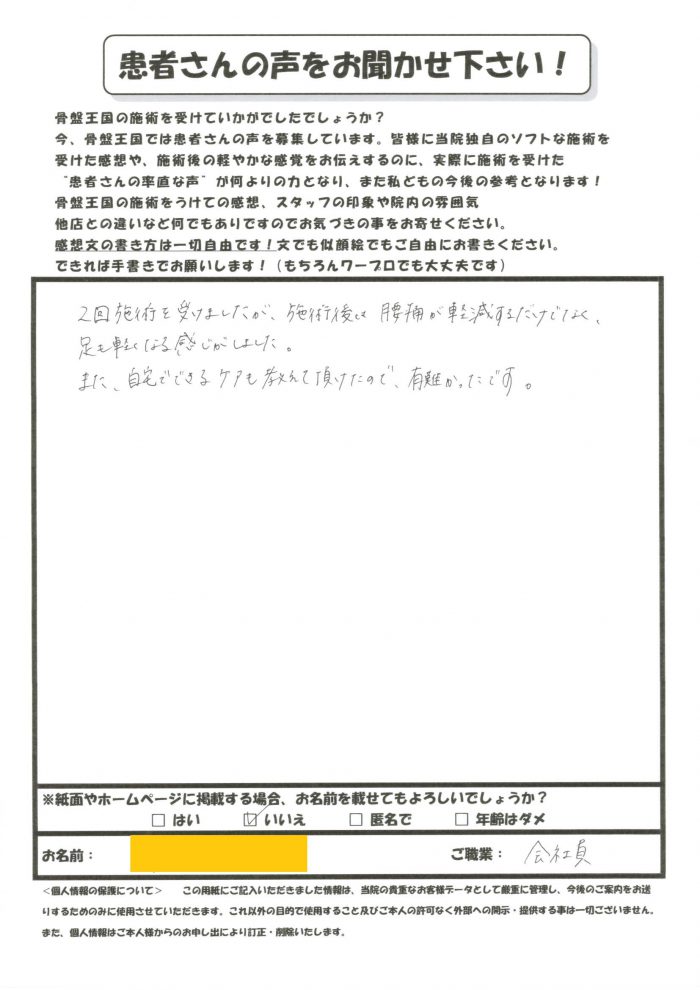 患者さんの声をお聞かせ下さい！
骨盤王国の施術を受けていかがでしたでしょうか？
今、骨盤王国では患者さんの声を募集しています。皆様に当院独自のソフトな施術を
受けた感想や、施術後の軽やかな感覚をお伝えするのに、実際に施術を受けた
“患者さんの率直な声”が何よりの力となり、また私どもの今後の参考となります！
骨盤王国の施術をうけての感想、スタッフの印象や院内の雰囲気
他店との違いなど何でもありですのでお気づきの事をお寄せください。
感想文の書き方は一切自由です！文でも似顔絵でもご自由にお書きください。
できれば手書きでお願いします！（もちろんワープロでも大丈夫です）
2回施術を受けましたが、施術後は腰痛が軽減するだけでなく、
足も軽くなる感じがしました。
また、自宅でできるケアも教えて頂けたので、有難かったです。
※紙面やホームページに掲載する場合、お名前を載せてもよろしいでしょうか？
□ はい ☑ いいえ □ 匿名で □ 年齢はダメ
お名前： ご職業： 会社員
＜個人情報の保護について＞ この用紙にご記入いただきました情報は、当院の貴重なお客様データとして厳重に管理し、今後のご案内をお送
りするためのみに使用させていただきます。これ以外の目的で使用すること及びご本人の許可なく外部への開示・提供する事は一切ございません。
また、個人情報はご本人様からのお申し出により訂正・削除いたします。